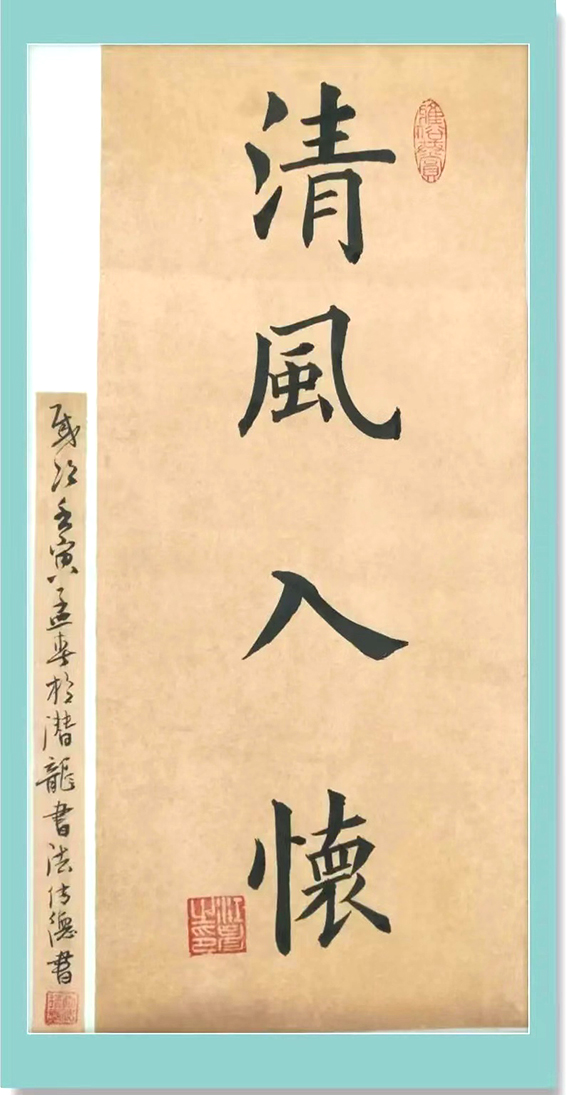 清風入懷
歲次壬寅孟春於潛龍書法傳德書